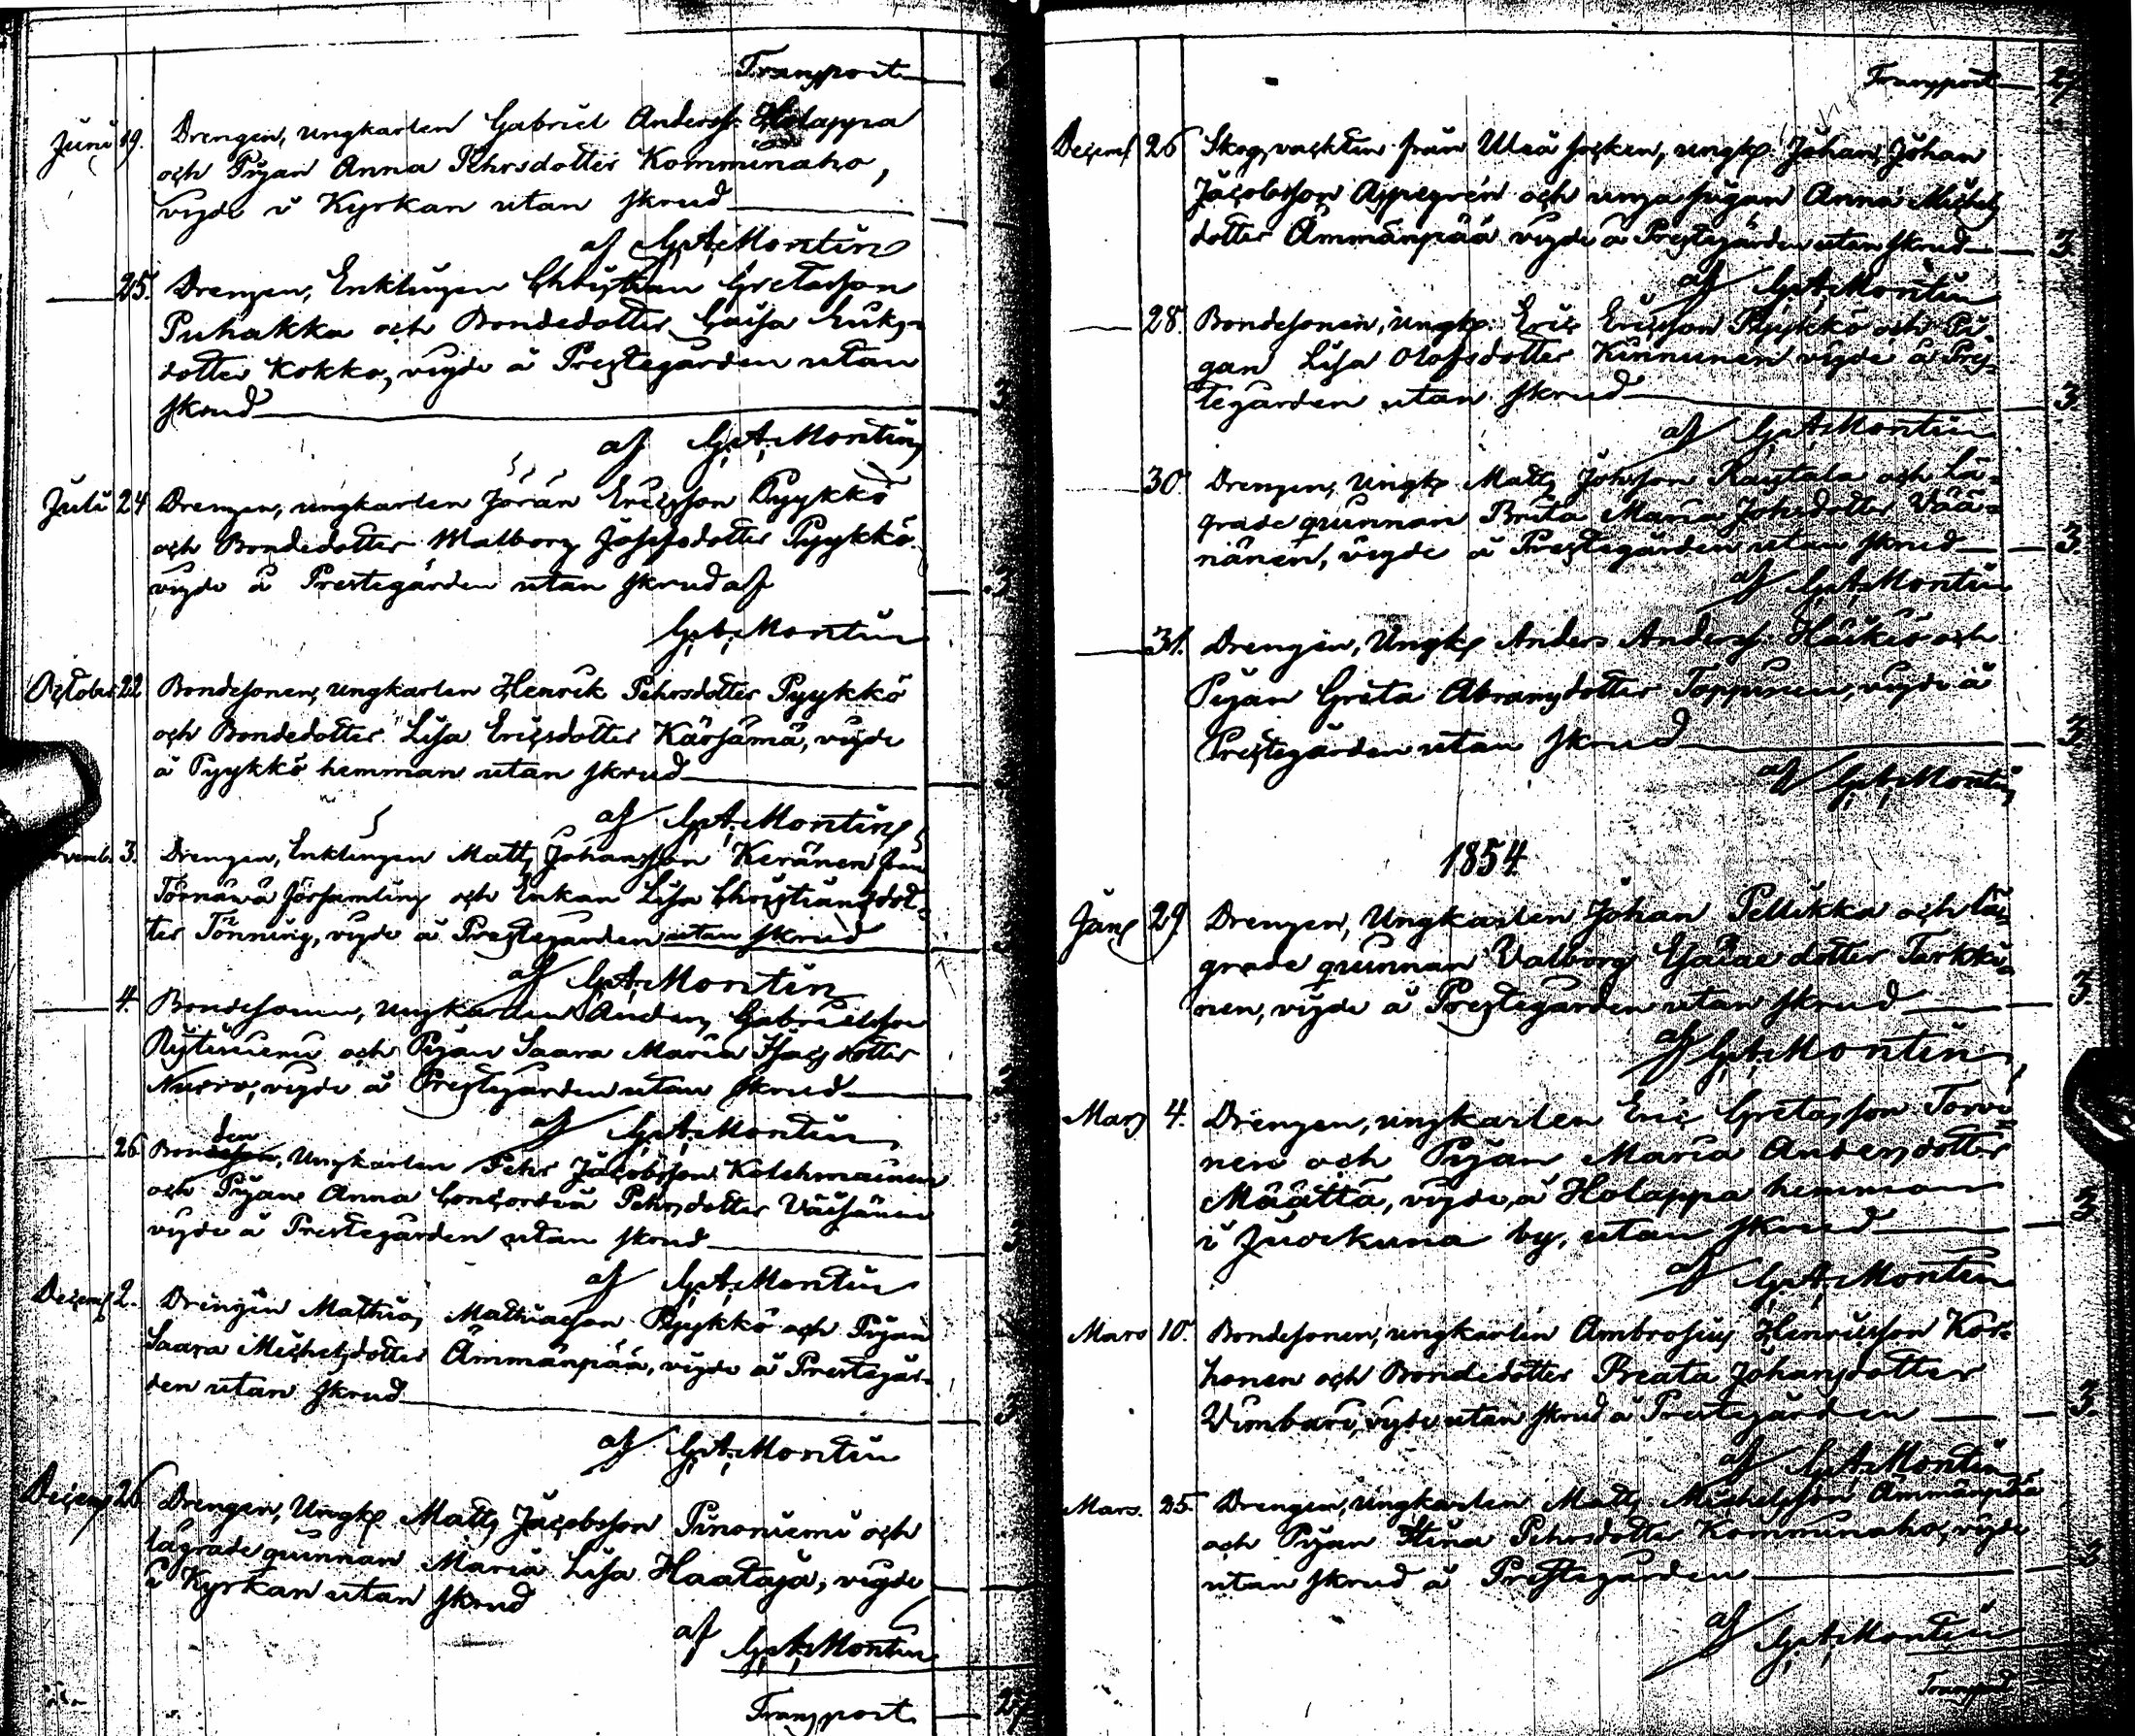 Transport
Juni 19. Drengen, ungkarlen Gabriel Anderss. Holappa
och Pigan Anna Pehrsdotter Komminaho,
vigde i Kyrkan utan skrud
af G. A. Montin
25. Drengen, Enklingen Christian Gretasson
Puhakka och Bondedotter Caisa Eriks-
dotter Kokko, vigde å Prestegården utan
skrud 3
af G. A. Montin
Juli 24 Drengen, ungkarlen Jöran Ericsson Pyykkö
och Bondedotter Malborg Josefsdotter Pyykkö
vigde å Prestegården utan skrud af 3.
G. A. Montin
October 22 Bondesonen, ungkarlen Henrik Pehrsdotter Pyykkö
och Bondedotter Lisa Ericsdotter Kärsämä, vigde
å Pyykkö hemman utan skrud 3
af G. A. Montin
Novemb. 3. Drengen, Enklingen Matts Johansson Keränen från
Törnäwä församling och Enkan Lisa Christiansdot-
ter Tönning, vigde å Prestegården utan skrud 3
af G. A. Montin
4. Bondesonen, ungkarlen Anders Gabrielsson
och Pigan Saara Maria Isacsdotter
Nurro, vigde å Prestegården utan skrud 3
af G. A. Montin
26 Bonden, Ungkarlen Pehr Jacobsson Kolehmainen
och Pigan Anna Concordia Pehrsdotter Väisänen
vigde å Prestegården utan skrud 3
af G. A. Montin
Decemb 2. Drengen Mathias Mathiasson Pyykkö och Pigan
Saara Michelsdotter Ämmänpää, vigde å Prestegår-
den utan skrud 3
af G. A. Montin
Decemb 26 Drengen, Ungk. Matts Jacobsson Pinoniemi och
lägrade qvinnan Maria Lisa Haataja, vigde
i Kyrkan utan skrud
af G. A. Montin
Transport 27
Transport 27
Decemb 26 Skogvackten från Uleå socken, ungk. Johan Johan
Jacobsson Appegren och unga pigan Anna Michels
dotter Ämmänpää vigde å Prestegården utan skrud 3
af G. A. Montin
28. Bondesonen, ungk. Eric Ericsson Pyykkö och Pi-
gan Lisa Olofsdotter Kinnunen vigde å Pres-
tegården utan skrud 3.
af G. A. Montin
30 Drengen, Ungk. Matts Johsson Rautala och Lä-
grade qvinnan Brita Maria Johsdotter Vää-
nänen, vigde å Prestegården utan skrud 3.
af G. A. Montin
31. Drengen, Ungk. Anders Anderss. Häikiö och
Pigan Greta Abramsdotter Tappinen, vigde å
Prestegården utan skrud 3.
af G. A. Montin
1854
Jan 29 Drengen, Ungkarlen Johan Pellikka och lä-
grade qvinnan Valborg Esaiae dotter Tarkki-
nen, vigde å Prestegården utan skrud 3.
af G. A. Montin
Mars 4. Drengen, ungkarlen Eric Gretasson Torvi-
nen och Pigan Maria Andersdotter
Määttä, vigde, å Holappa hemman
i Juorkuna by, utan skrud 3.
af G. A. Montin
Mars 10. Bondesonen, ungkarlen Ambrosius Henricsson Kor-
honen och Bondedotter Beata Johansdotter
Vimbari, vigde utan skrud å Prestegården 3.
af G. A. Montin
Mars. 25. Drengen, ungkarlen Matts Michelsson Ämmänpää
och Pigan Stina Pehrsdotter Komminaho, vigde
utan skrud å Prestegården 3
af G. A. Montin
Transport